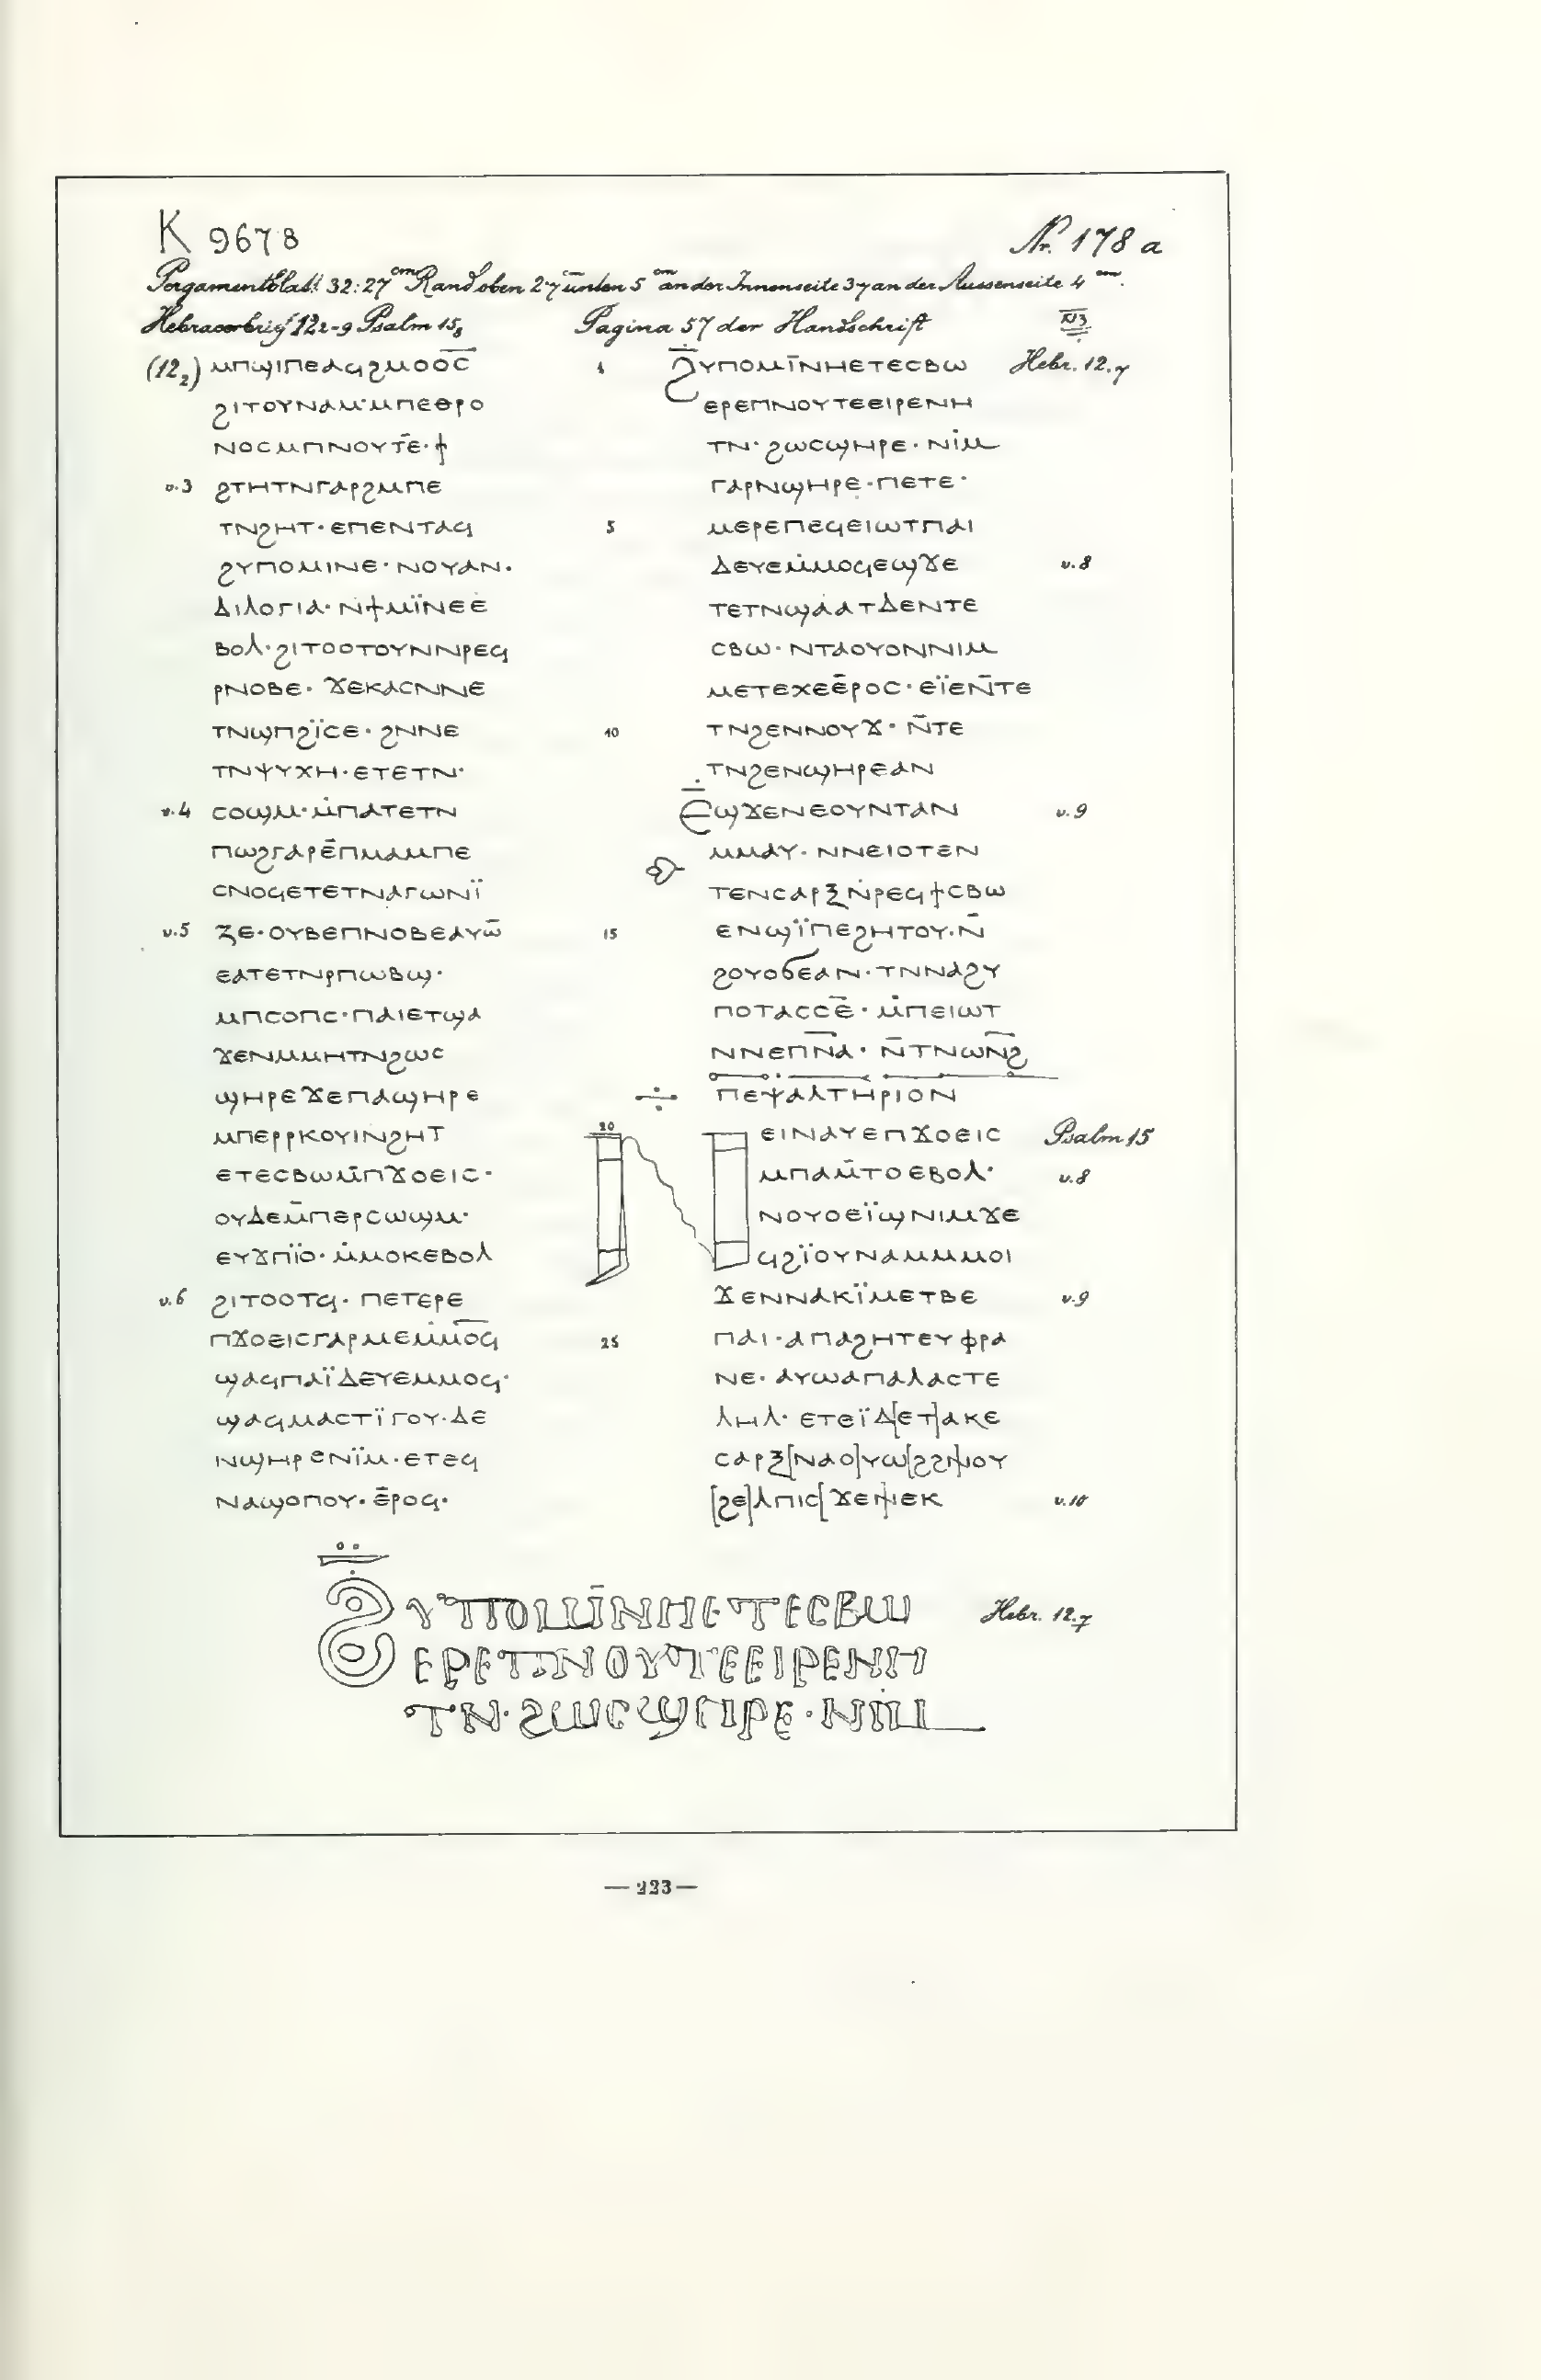 K 9678
Nr. 178 a
Pergamentblatt 32:27 cm Rand oben 2·7 unten 5 cm an der Innenseite 3·7 an der Aussenseite 4 cm.
Hebraeerbrief 12 2-9 Psalm 15 8
Pagina 57 der Handschrift
ⲛ̅ⲍ̅
(12 2) ⲙⲡϣⲓⲡⲉⲁϥϩⲙⲟⲟ̅ⲥ̅
ϩⲓⲧⲟⲩⲛⲁⲙ·ⲙⲡⲉⲑⲣⲟ
ⲛⲟⲥⲙⲡⲛⲟⲩⲧⲉ̄·ϯ
v.3 ϩⲧⲏⲧⲛⲅⲁⲣϩⲙⲡⲉ
ⲧⲛϩⲏⲧ·ⲉⲡⲉⲛⲧⲁϥ
ϩⲩⲡⲟⲙⲓⲛⲉ·ⲛⲟⲩⲁⲛ·
ⲇⲓⲗⲟⲅⲓⲁ·ⲛϯⲙⲓ̈ⲛⲉⲉ
ⲃⲟⲗ·ϩⲓⲧⲟⲟⲧⲟⲩⲛⲛⲣⲉϥ
ⲣⲛⲟⲃⲉ·ϫⲉⲕⲁⲥⲛⲛⲉ
ⲧⲛϣⲡϩⲓ̈ⲥⲉ·ϩⲛⲛⲉ
ⲧⲛⲯⲩⲭⲏ·ⲉⲧⲉⲧⲛ·
v.4 ⲥⲟϣⲙ·ⲙ̇ⲡⲁⲧⲉⲧⲛ
ⲡⲱϩⲅⲁⲣⲉ̄ⲡⲙⲁⲙⲡⲉ
ⲥⲛⲟϥⲉⲧⲉⲧⲛⲁⲅⲱⲛⲓ̈
v.5 ⲍⲉ·ⲟⲩⲃⲉⲡⲛⲟⲃⲉⲁⲩⲱ̅
ⲉⲁⲧⲉⲧⲛⲣⲡⲱⲃϣ·
ⲙⲡⲥⲟⲡⲥ·ⲡⲁⲓⲉⲧϣⲁ
ϫⲉⲛⲙⲙⲏⲧⲛϩⲱⲥ
ϣⲏⲣⲉϫⲉⲡⲁϣⲏⲣⲉ
ⲙⲡⲉⲣⲣⲕⲟⲩⲓⲛϩⲏⲧ
ⲉⲧⲉⲥⲃⲱⲙ̄ⲡϫⲟⲉⲓⲥ·
ⲟⲩⲇⲉⲙ̄ⲡⲉⲣⲥⲱϣⲙ·
ⲉⲩϫⲡⲓ̈ⲟ·ⲙ̇ⲙⲟⲕⲉⲃⲟⲗ
v.6 ϩⲓⲧⲟⲟⲧϥ·ⲡⲉⲧⲉⲣⲉ
ⲡϫⲟⲉⲓⲥⲅⲁⲣⲙⲉⲙ̇ⲙⲟ̅ϥ
ϣⲁϥⲡⲁⲓ̈ⲇⲉⲩⲉⲙⲙⲟϥ·
ϣⲁϥⲙⲁⲥⲧⲓ̈ⲅⲟⲩ·ⲇⲉ
ⲛϣⲏⲣⲉⲛⲓ̈ⲙ·ⲉⲧⲉϥ
ⲛⲁϣⲟⲡⲟⲩ·ⲉ̄ⲣⲟϥ·
1 ϩⲩⲡⲟⲙⲓ̄ⲛⲏⲉⲧⲉⲥⲃⲱ Hebr. 12.7
ⲉⲣⲉⲡⲛⲟⲩⲧⲉⲉⲓⲣⲉⲛⲏ
ⲧⲛ·ϩⲱⲥϣⲏⲣⲉ·ⲛⲓⲙ
ⲅⲁⲣⲛϣⲏⲣⲉ·ⲡⲉⲧⲉ·
5 ⲙⲉⲣⲉⲡⲉϥⲉⲓⲱⲧⲡⲁⲓ
ⲇⲉⲩⲉⲙ̇ⲙⲟϥⲉϣϫⲉ v.8
ⲧⲉⲧⲛϣⲁⲁⲧⲇⲉⲛⲧⲉ
ⲥⲃⲱ·ⲛⲧⲁⲟⲩⲟⲛⲛⲓⲙ
ⲙⲉⲧⲉⲭⲉⲉ̄ⲣⲟⲥ·ⲉⲓ̈ⲉⲛ̄ⲧⲉ
10 ⲧⲛϩⲉⲛⲛⲟⲩϫ·ⲛ̄ⲧⲉ
ⲧⲛϩⲉⲛϣⲏⲣⲉⲁⲛ
ⲉϣϫⲉⲛⲉⲟⲩⲛⲧⲁⲛ v.9
ⲙⲙⲁⲩ·ⲛⲛⲉⲓⲟⲧⲉⲛ
ⲧⲉⲛⲥⲁⲣⲝⲛ̇ⲣⲉϥϯⲥⲃⲱ
15 ⲉⲛϣⲓ̈ⲡⲉϩⲏⲧⲟⲩ·ⲛ̄
ϩⲟⲩⲟϭⲉⲁⲛ·ⲧⲛⲛⲁϩⲩ
ⲡⲟⲧⲁⲥⲥⲉ̄·ⲙ̇ⲡⲉⲓⲱⲧ
ⲛⲛⲉⲡ̅ⲛ̅ⲁ·ⲛ̄ⲧⲛⲱⲛ̅ϩ̅
÷ ⲡⲉⲯⲁⲗⲧⲏⲣⲓⲟⲛ
20 ⲉⲓⲛⲁⲩⲉⲡϫⲟⲉⲓⲥ Psalm 15
ⲙⲡⲁⲙ̄ⲧⲟⲉⲃⲟⲗ· v.8
ⲛⲟⲩⲟⲉⲓ̈ϣⲛⲓⲙϫⲉ
ϥϩⲓ̈ⲟⲩⲛⲁⲙⲙⲙⲟⲓ
ϫⲉⲛⲛⲁⲕⲓ̈ⲙⲉⲧⲃⲉ v.9
25 ⲡⲁⲓ·ⲁⲡⲁϩⲏⲧⲉⲩⲫⲣⲁ
ⲛⲉ·ⲁⲩⲱⲁⲡⲁⲗⲁⲥⲧⲉ
ⲗⲏⲗ·ⲉⲧⲉⲓ̈ⲇ[ⲉⲧ]ⲁⲕⲉ
ⲥⲁⲣⲝ[ⲛⲁⲟ]ⲩⲱ[ϩϩⲛ]ⲟⲩ
[ϩⲉ]ⲗⲡⲓⲥ[ϫⲉⲛ]ⲛⲉⲕ v.10
ϩⲩⲡⲟⲙⲓ̄ⲛⲏⲉⲧⲉⲥⲃⲱ Hebr. 12.7
ⲉⲣⲉⲡⲛⲟⲩⲧⲉⲉⲓⲣⲉⲛⲏ
ⲧⲛ·ϩⲱⲥϣⲏⲣⲉ·ⲛⲓⲙ
— 223 —